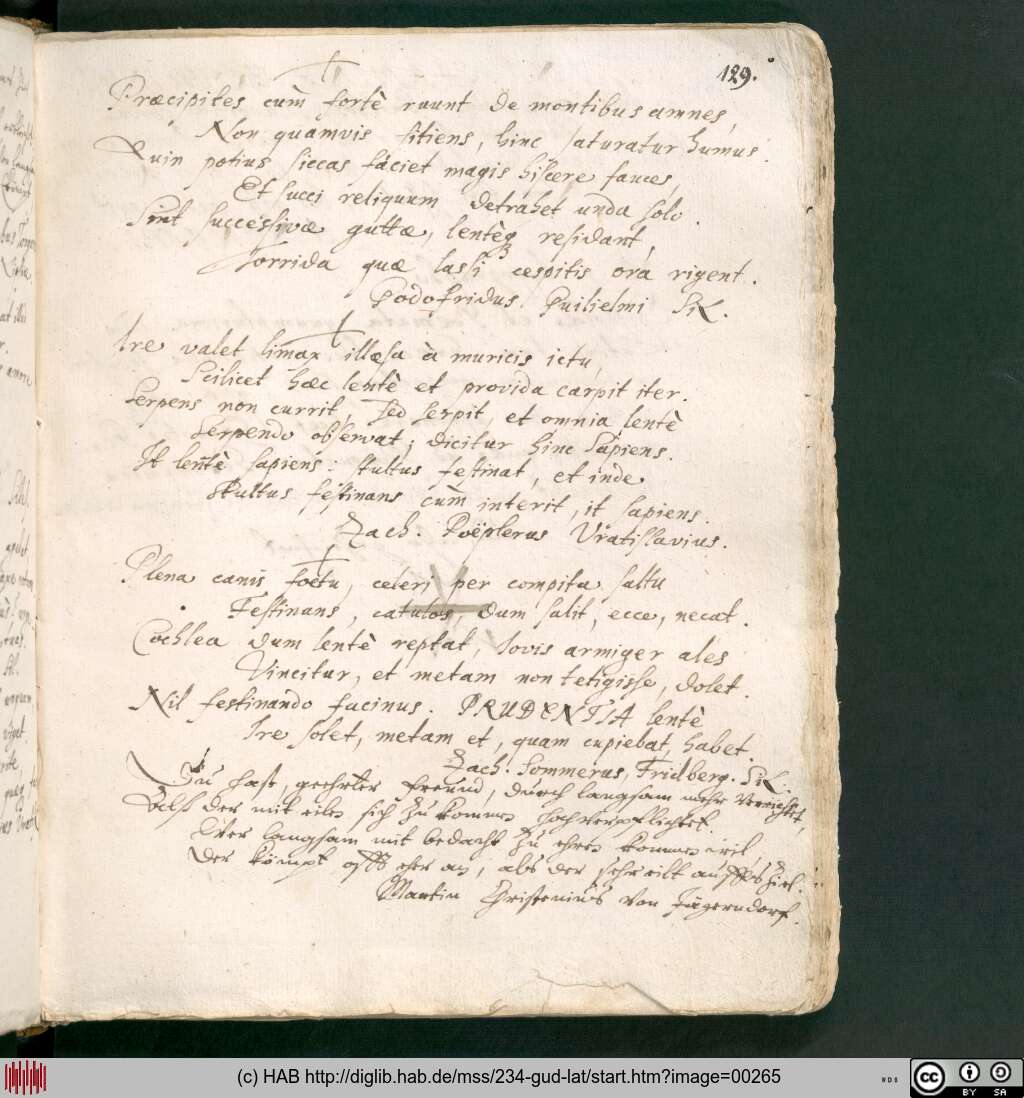 129.
Præcipites cùm fortè ruunt de montibus amnes,
Non quamvis sitiens, hinc saturatur humus.
Quin potius siccas faciet magis hiscere fauces,
Et succi reliquum detrahet unda solo.
Sint successivæ guttæ, lentèq residant,
Torrida quæ lassi cespitis ora rigent.
Godofridus Guilielmi Sil.
Ire valet limax illæsa à muricis ictu,
Scilicet hæc lentè et provida carpit iter.
Serpens non currit, sed serpit, et omnia lentè
Serpendo observat; dicitur hinc sapiens.
It lentè sapiens: stultus festinat, et inde
Stultus festinans cùm interit, it sapiens.
Zach. Poëplerus Vratislavius.
Plena canis foetu, celeri per compita saltu
Festinans, catulos, dum salit, ecce, necat.
Cochlea dum lentè reptat, Iovis armiger ales
Vincitur, et metam non tetigisse, dolet.
Nil festinando facinus. PRUDENTIA lentè
Ire solet, metam et, quam cupiebat, habet.
Zach. Sommerus, Fridberg. Sil.
Du hast, geehrter freund, durch langsam mehr verrichtet,
der mit eilen sich zu kommen hoch verpflichtet.
Wer langsam mit bedacht zu ehren kommen wil
der kömpt offt eher an, als der sehr eilt auffs Ziel.
Martin Christenius von Jägerndorf.
(c) HAB http://diglib.hab.de/mss/234-gud-lat/start.htm?image=00265
WDB
cc
BY SA